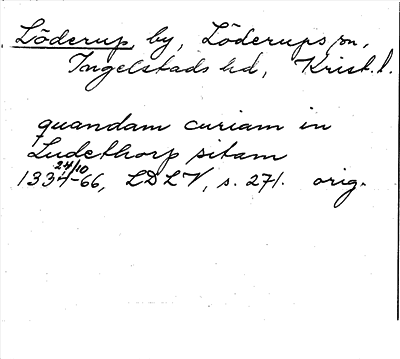 Löderup by, Löderups sn,
Ingelstads hd, Krist. l.
quandam curiam in
Ludethorp sitam
24/10
1334-66, LDLV, s. 271. orig.